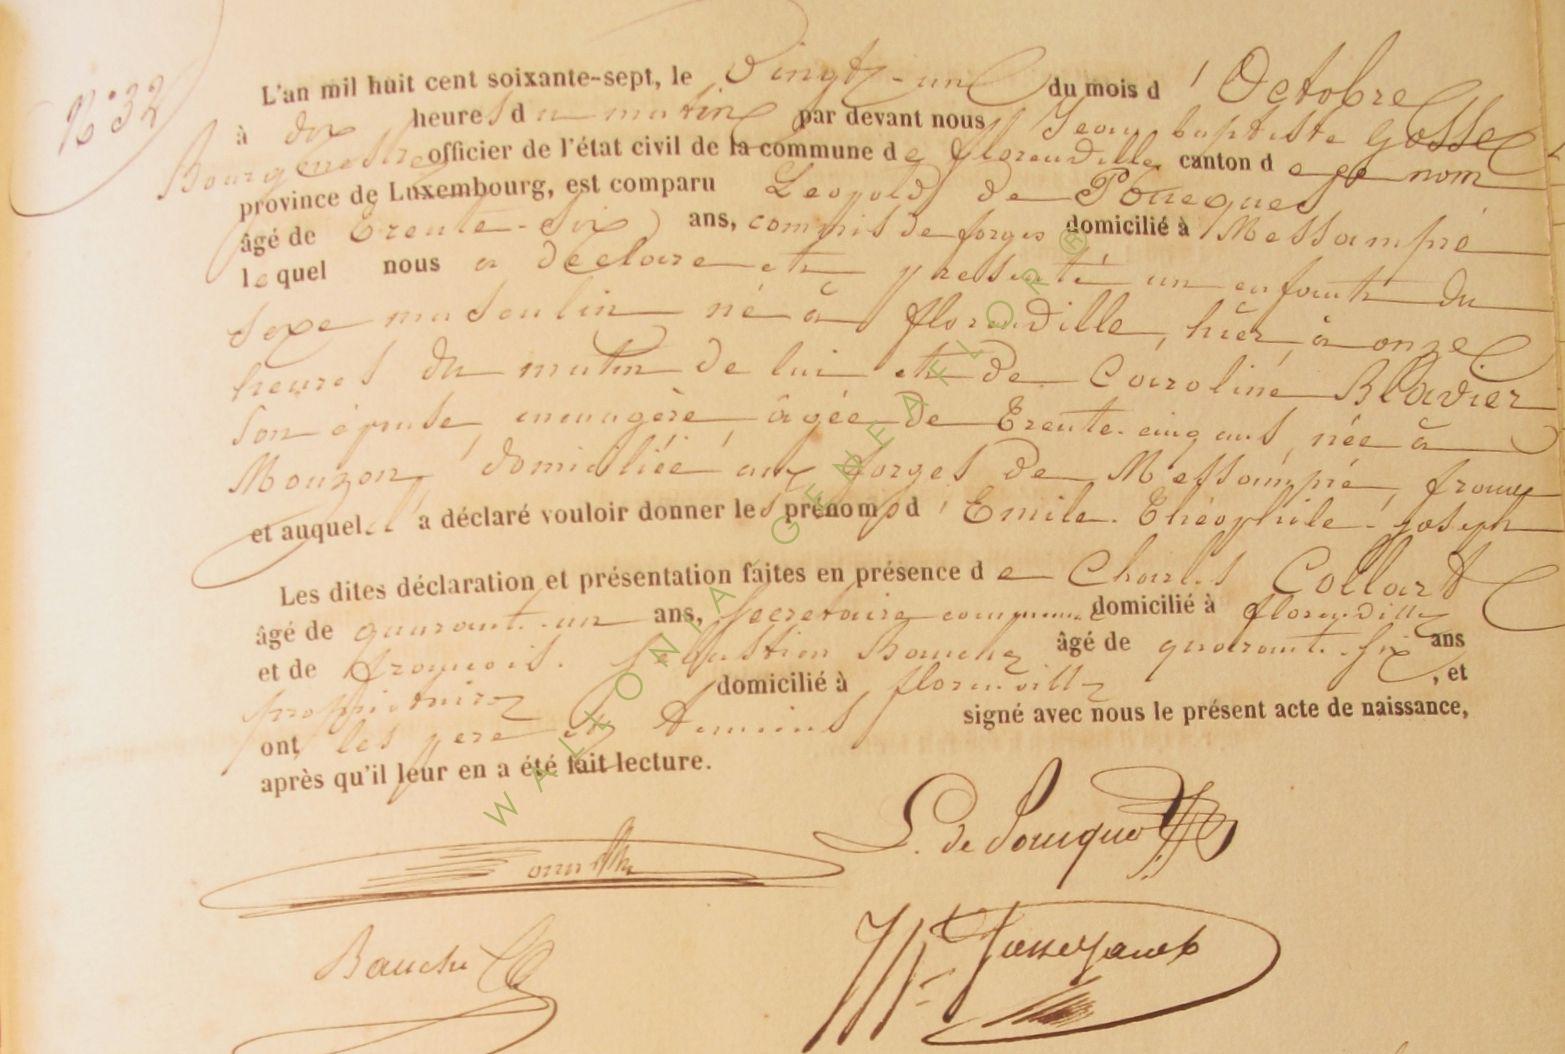 N° 32
L'an mil huit cent soixante-sept, le vingt-un du mois d'Octobre
à dix heures du matin par devant nous Jean baptiste Gosse
Bourgmestre officier de l'état civil de la commune de florenville canton de ce nom
province de Luxembourg, est comparu Leopold de Pouques
âgé de Trente-six ans, commis de forges domicilié à Messampré
lequel nous a déclaré et présenté un enfant du
sexe masculin né à florenville, hier, à onze
heures du matin de lui et de Caroline Bladier
son épouse, menagère, âgée de Trente-cinq ans, née à
Mouzon, domiciliée aux forges de Messampré, france
et auquel il a déclaré vouloir donner les prénoms d'Emile-Théophile-joseph
Les dites déclaration et présentation faites en présence de Charles Collard
âgé de quarante-un ans, secretaire communal domicilié à florenville
et de françois-Sebastien Bauche âgé de quarante-six ans
propriétaire domicilié à florenville, et
ont les père et temoins signé avec nous le présent acte de naissance,
après qu'il leur en a été fait lecture.
L. de Pouques
Bauche
WALLONIA GENEAFLOR©